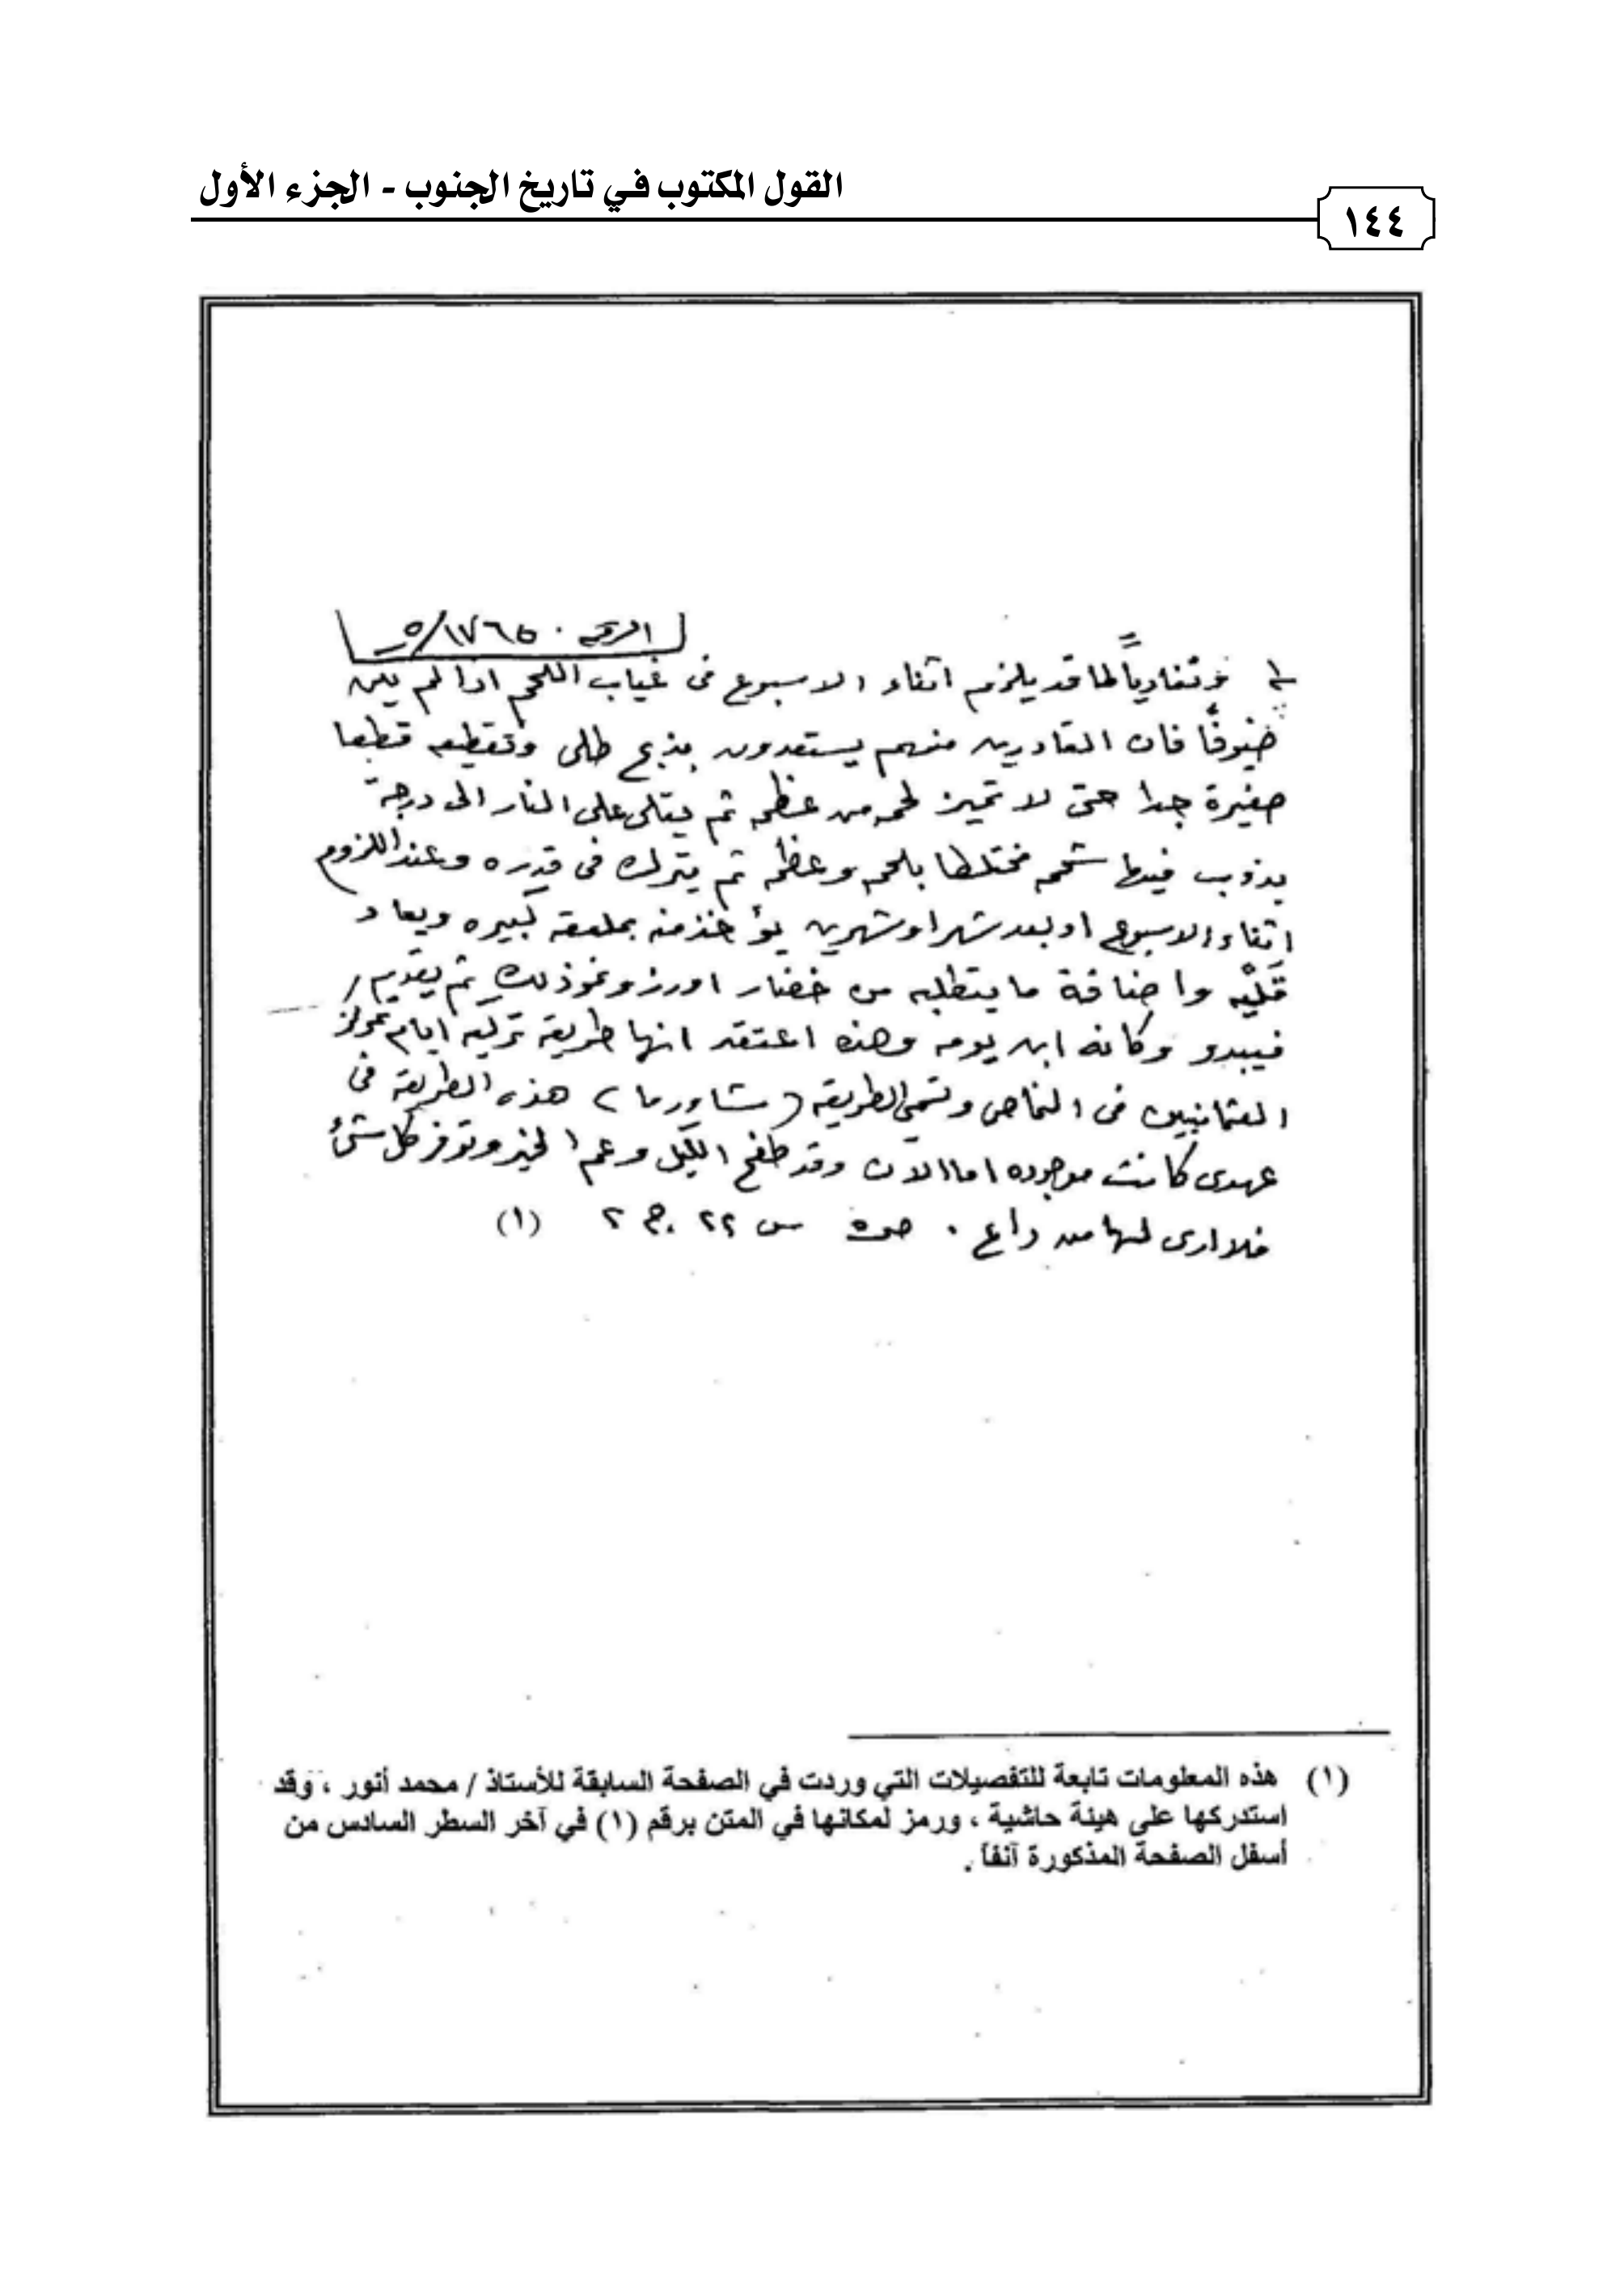 القول المكتوب في تاريخ الجنوب - الجزء الأول
١٤٤
وتفادياً لما قد يلزم اثناء الاسبوع فى غياب اللحم اذا لم يكن
ضيوفاً فان القادرين منهم يستعدون بذبح طلى وتقطيعه قطعا
صغيرة جدا حتى لا تميز لحمه من عظمه ثم يقلى على النار الى درجة
يذوب فيها شحمه مختلطا بلحمه وعظمه ثم يترك فى قدره وعند اللزوم
اثناء الاسبوع او بعد شهر او شهرين يؤخذ منه بملعقه كبيره ويعاد
قَليْه واضافة ما يتطلبه من خضار او رز ونحو ذلك ثم يقدم
فيبدو وكانه ابن يومه وهذه اعتقد انها طريقه تركيه ايام
العثمانيين فى وتسمى الطريقه (شاورما) هذه الطريقه فى
عهدى كانت موجوده اما الان وقد طفح الكيل وعم الخير وتوفر كل شئ
فلا ارى لها من داع . ص٥ س ٢٢ ج ٢ (١)
(١) هذه المعلومات تابعة للتفصيلات التي وردت في الصفحة السابقة للأستاذ / محمد أنور ، وقد
استدركها على هيئة حاشية ، ورمز لمكانها في المتن برقم (١) في آخر السطر السادس من
أسفل الصفحة المذكورة آنفاً .